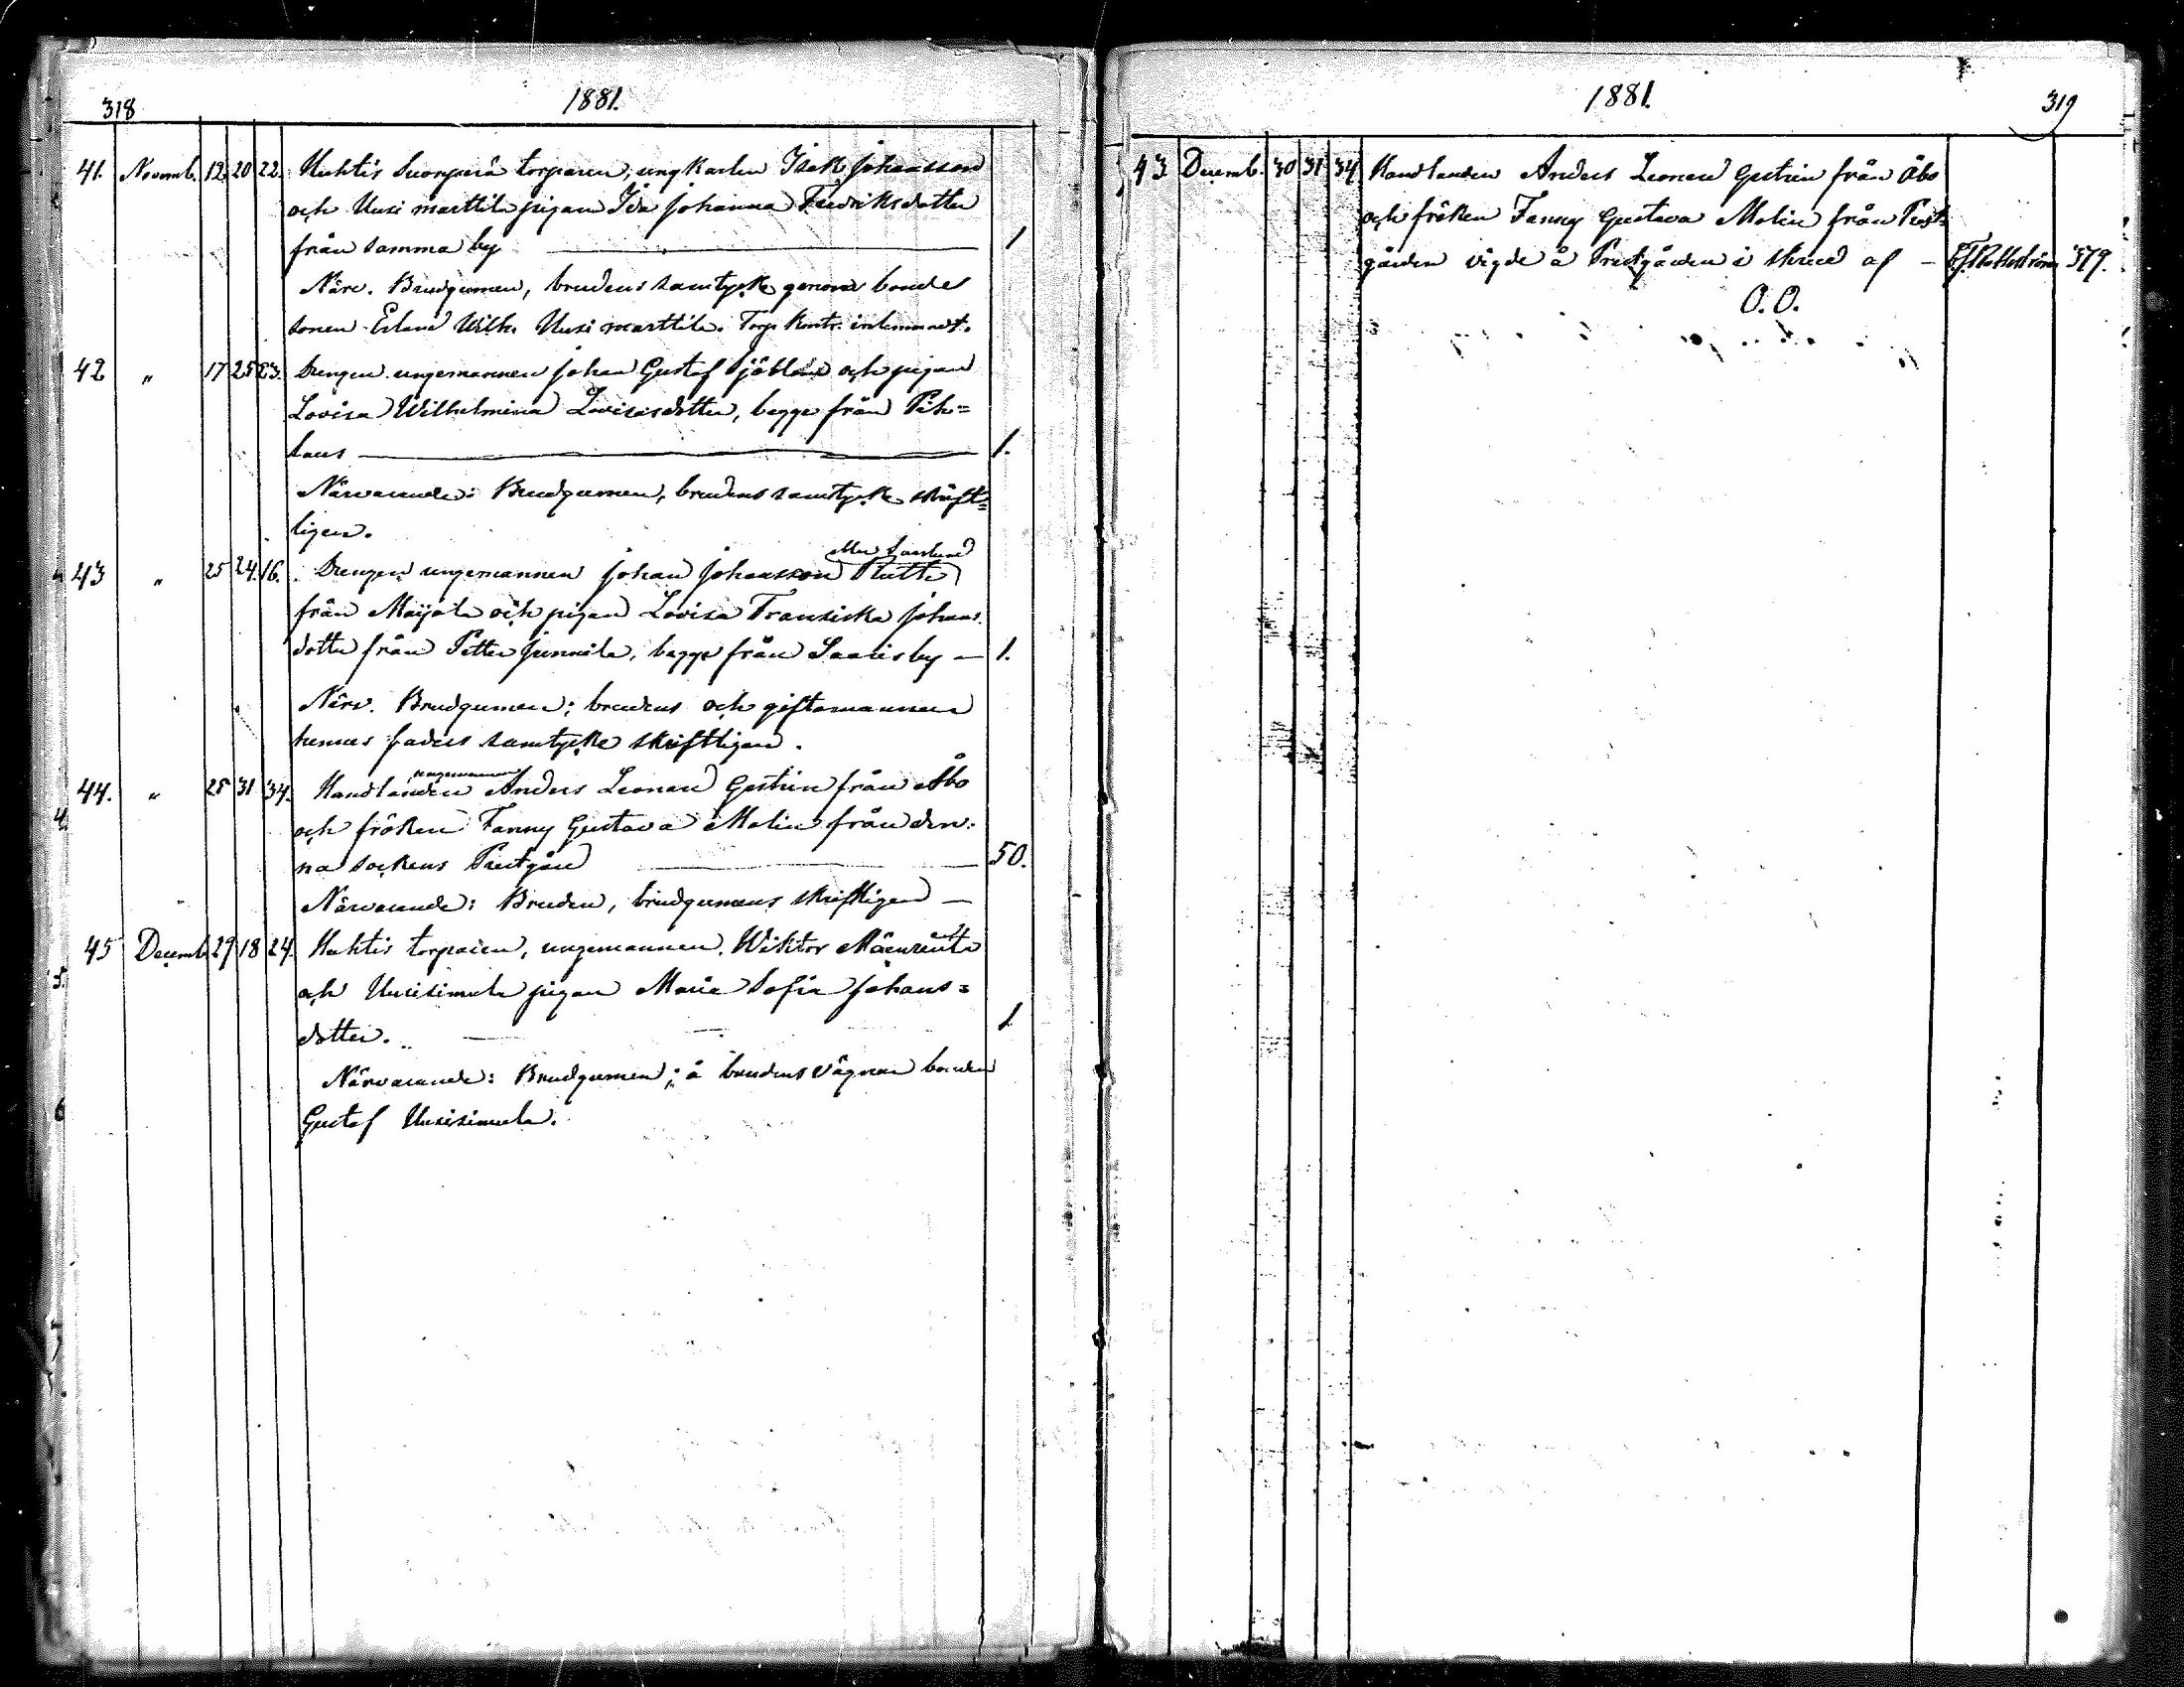 318
1881.
41. Novemb. 12. 20 22. Huhtis Suonperä torparen, ungkarlen Isak Johansson
och Uusi marttila pigan Ida Johanna Fredriksdotter
från samma by 1
Närv. Brudgumen, brudens samtycke genom bonde
sonen Erland Wilh. Uusi marttila. Torp. Kontr. inlemnadt.
42 " 17 25 23. Drengen ungemannen Johan Gustaf och pigan
Lovisa Wilhelmina Lovisasdotter, begge från Pih=
laus 1.
Närvarande: Brudgumen, brudens samtycke skrift=
ligen.
eller
43 " 25 24. 16. Drengen ungemannen Johan Johansson
från Maijala och pigan Lovisa Fransiska Johans
dotter från Petter Junnila, begge från Saaris by 1.
Närv. Brudgumen; brudens och giftomannen
hennes faders samtycke skriftligen.
ungemannen
44. " 25 31 34. Handlanden Anders Leonard Gestrin från Åbo
och fröken Fanny Gustava Molin från den=
na sockens Prestgård 50.
Närvarande: Bruden, brudgumens skriftligen
45 Decemb. 29 18 24. Huhtis torparen, ungemannen Wiktor Mäenrinta
och Uusisimula pigan Maria Sofia Johans=
dotter. 1
Närvarande: Brudgumen; å brudens vägnar bonden
Gustaf Uusisimula.
1881.
319
43 Decemb. 30 31 34 Handlanden Anders Leonard Gestrin från Åbo
och fröken Fanny Gustava Molin från Prest=
gården vigde å Prestgården i af 379.
O.O.